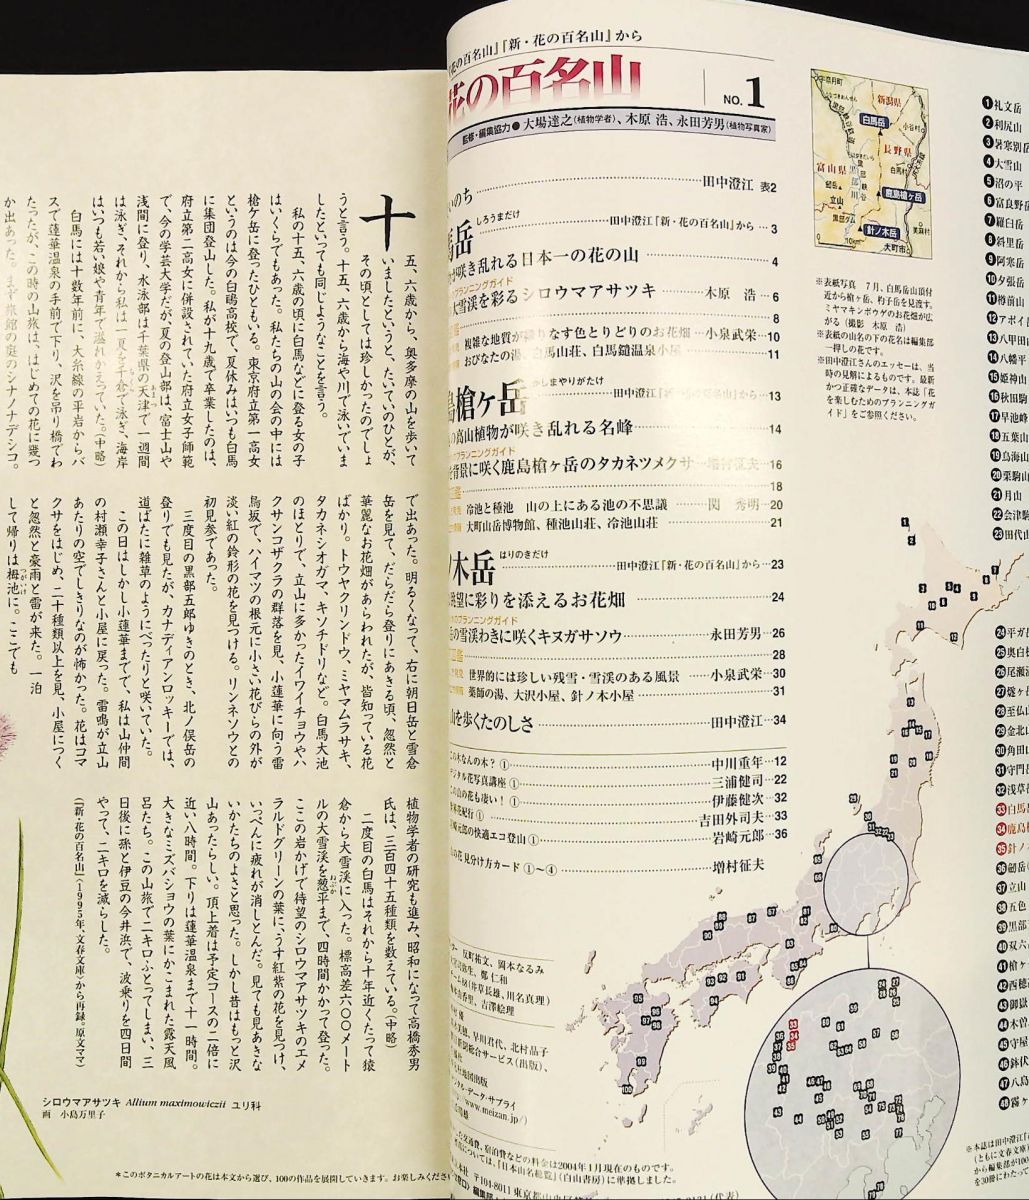 十
五、六歳から、奥多摩の山を歩いて
いましたというと、たいていのひとが、
その頃としては珍しかったのでしょ
うと言う。十五、六歳から海や川で泳いでいま
したといっても同じようなことを言う。
私の十五、六歳の頃に白馬などに登る女の子
はいくらでもあった。私たちの山の会の中には
槍ケ岳に登ったひともいる。東京府立第一高女
というのは今の白鷗高校で、夏休みはいつも白馬
に集団登山した。私が十九歳で卒業したのは、
府立第二高女に併設されていた府立女子師範
で、今の学芸大学だが、夏の登山部は、富士山や
浅間に登り、水泳部は千葉県の天津で一週間
は泳ぎ、それから私は一夏を千倉で泳ぎ、海岸
はいつも若い娘や青年で溢れかえっていた。(中略)
白馬には十数年前に、大糸線の平岩からバ
スで蓮華温泉の手前で下り、沢を吊り橋でわ
たったが、この時の山旅は、はじめての花に幾つ
か出あった。まず旅館の庭のシナノナデシコ。
で出あった。明るくなって、右に朝日岳と雪倉
岳を見て、だらだら登りにあきる頃、忽然と
華麗なお花畑があらわれたが、皆知っている花
ばかり。トウヤクリンドウ、ミヤマムラサキ、
タカネシオガマ、キソチドリなど。白馬大池
のほとりで、立山に多かったイワイチョウやハ
クサンコザクラの群落を見、小蓮華に向う雷
鳥坂で、ハイマツの根元に小さい花びらの外が
淡い紅の鈴形の花を見つける。リンネソウとの
初見参であった。
三度目の黒部五郎ゆきのとき、北ノ俣岳の
登りでも見たが、カナディアンロッキーでは、
道ばたに雑草のようにべったりと咲いていた。
この日はしかし小蓮華まで、私は山仲間
の村瀬幸子さんと小屋に戻った。雷鳴が立山
あたりの空でしきりなのが怖かった。花はコマ
クサをはじめ、二十種類以上を見、小屋につく
と忽然と豪雨と雷が来た。一泊
して帰りは栂池に。ここでも
植物学者の研究も進み、昭和になって高橋秀男
氏は、三百四十五種類を数えている。(中略)
二度目の白馬はそれから十年近くたって猿
倉から大雪渓に入った。標高差六〇〇メート
ルの大雪渓を葱平まで、四時間かかって登った。
この岩かげで待望のシロウマアサツキのエメ
ラルドグリーンの葉に、うす紅紫の花を見つけ、
いっぺんに疲れが消しとんだ。見ても見あきな
いかたちのよさと思った。しかし昔はもっと沢
山あったらしい。頂上着は予定コースの二倍に
近い八時間。下りは蓮華温泉まで十一時間。
大きなミズバショウの葉にかこまれた露天風
呂たち。この山旅で二キロふとってしまい、三
日後に孫と伊豆の今井浜で、波乗りを四日間
やって、二キロを減らした。
(『新・花の百名山』(1995年、文春文庫)から再録。原文ママ)
シロウマアサツキ Allium maximowiczii ユリ科
画 小島万里子
*このボタニカルアートの花は本文から選び、100の作品を展開していきます。お楽しみくださ
花の百名山』『新・花の百名山』から
花の百名山 NO.1
監修・編集協力●大場達之(植物学者)、木原 浩、永田芳男(植物写真家)
いのち 田中澄江 表2
馬岳 しろうまだけ 田中澄江『新・花の百名山』から 3
が咲き乱れる日本一の花の山 4
プランニングガイド
大雪渓を彩るシロウマアサツキ 木原 浩 6
8
複雑な地質が織りなす色とりどりのお花畑 小泉武栄 10
おびなたの湯、白馬山荘、白馬鑓温泉小屋 11
島槍ヶ岳 かしまやりがたけ 田中澄江『新・花の百名山』から 13
の高山植物が咲き乱れる名峰 14
プランニングガイド
を背景に咲く鹿島槍ヶ岳のタカネツメクサ 増村征夫 16
18
冷池と種池 山の上にある池の不思議 関 秀明 20
大町山岳博物館、種池山荘、冷池山荘 21
ノ木岳 はりのきだけ 田中澄江『新・花の百名山』から 23
絶望に彩りを添えるお花畑 24
プランニングガイド
の雪渓わきに咲くキヌガサソウ 永田芳男 26
28
世界的には珍しい残雪・雪渓のある風景 小泉武栄 30
薬師の湯、大沢小屋、針ノ木小屋 31
山を歩くたのしさ 田中澄江 34
この木なんの木?① 中川重年 12
デジタル花写真講座① 三浦健司 22
この山の花も凄い!① 伊藤健次 32
花紀行① 吉田外司夫 33
岩崎元郎の快適エコ登山① 岩崎元郎 36
山の花 見分け方カード①〜④ 増村征夫
反町祐文、岡本なるみ
鄭 仁和
(井草長雄、川名真理)
吉澤絵理
早川君代、北村晶子
新聞総合サービス(出版)、
地図出版
データ・サプライ
www.meizan.jp/)
た交通費、宿泊費などの料金は2004年1月現在のものです。
については、『日本山名総覧』(白山書房)に準拠しました。
〒104-8011 東京都
新潟県
白馬岳
小谷村
長野県
富山県
白馬村
鹿島槍ヶ岳
剱岳
立山
黒部ダム
針ノ木岳
美麻村
大町市
0 10km
※表紙写真 7月、白馬岳山頂付
近から槍ヶ岳、杓子岳を見渡す。
ミヤマキンポウゲのお花畑が広
がる(撮影 木原 浩)
※表紙の山名の下の花名は編集部
一押しの花です。
※田中澄江さんのエッセーは、当
時の見解によるものです。最新
かつ正確なデータは、本誌「花
を楽しむためのプランニングガ
イド」をご参照ください。
❶礼文岳
❷利尻山
❸暑寒別岳
❹大雪山
❺沼の平
❻富良野岳
❼羅臼岳
❽斜里岳
❾阿寒岳
❿夕張岳
⓫樽前山
⓬アポイ
⓭八甲田
⓮八幡平
⓯姫神山
⓰秋田駒
⓱早池峰
⓲五葉山
⓳鳥海山
⓴栗駒山
㉑月山
㉒会津駒
㉓田代山
㉔平ガ岳
㉕奥白根
㉖尾瀬
㉗燧ヶ岳
㉘至仏山
㉙金北山
㉚角田山
㉛守門岳
㉜浅草岳
㉝白馬岳
㉞鹿島槍
㉟針ノ木
㊱剱岳
㊲立山
㊳五色
㊴黒部
㊵双六
㊶槍ヶ
㊷西穂
㊸御嶽
㊹木曽
㊺守屋
㊻鉢伏
㊼八島
㊽霧ヶ
※本誌は田中澄江『
(ともに文春文庫)
から編集部が100
を30冊にわたっ